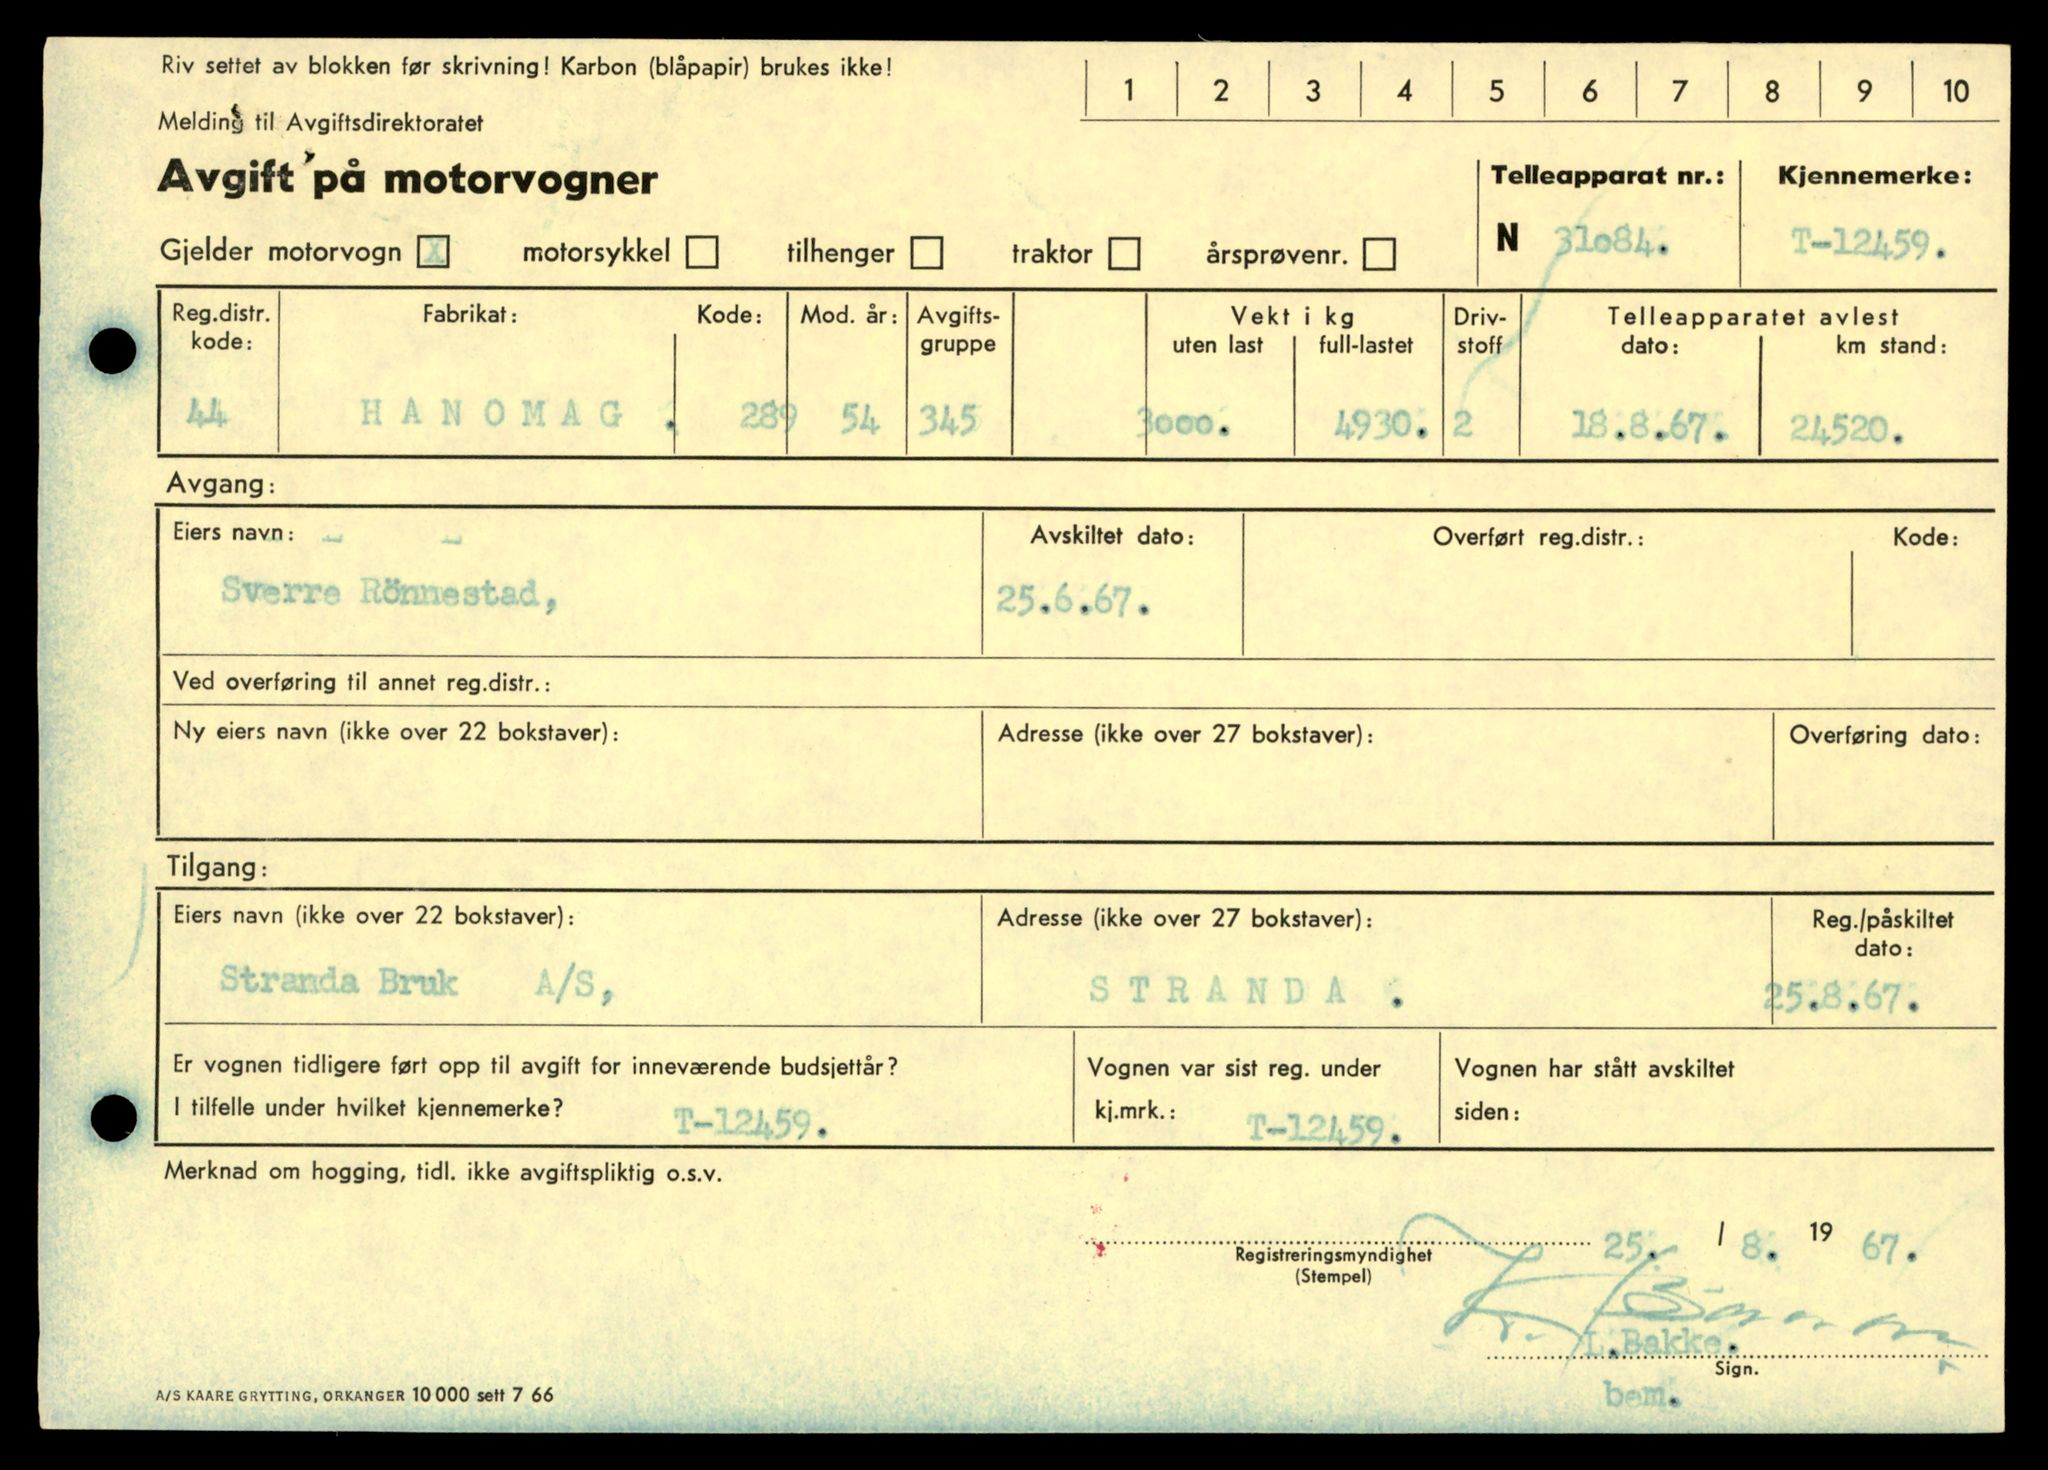 Riv settet av blokken før skrivning! Karbon (blåpapir) brukes ikke!
1 2 3 4 5 6 7 8 9 10
Melding til Avgiftsdirektoratet
Avgift på motorvogner
Telleapparat nr.: Kjennemerke:
N 31084. T-12459.
Gjelder motorvogn X motorsykkel tilhenger traktor årsprøvenr.
Reg.distr. kode: Fabrikat: Kode: Mod. år: Avgifts-gruppe Vekt i kg uten last full-lastet Driv-stoff Telleapparatet avlest dato: km stand:
44 HANOMAG. 289 54 345 3000. 4930. 2 18.8.67. 24520.
Avgang:
Eiers navn: Avskiltet dato: Overført reg.distr.: Kode:
Sverre Rönnestad, 25.6.67.
Ved overføring til annet reg.distr.:
Ny eiers navn (ikke over 22 bokstaver): Adresse (ikke over 27 bokstaver): Overføring dato:
Tilgang:
Eiers navn (ikke over 22 bokstaver): Adresse (ikke over 27 bokstaver): Reg./påskiltet dato:
Stranda Bruk A/S, STRANDA. 25.8.67.
Er vognen tidligere ført opp til avgift for inneværende budsjettår? Vognen var sist reg. under Vognen har stått avskiltet
I tilfelle under hvilket kjennemerke? T-12459. kj.mrk.: T-12459. siden:
Merknad om hogging, tidl. ikke avgiftspliktig o.s.v.
25. / 8. 19 67.
Registreringsmyndighet
(Stempel)
L.Bakke.
Sign.
bem.
A/S KAARE GRYTTING, ORKANGER 10 000 sett 7 66